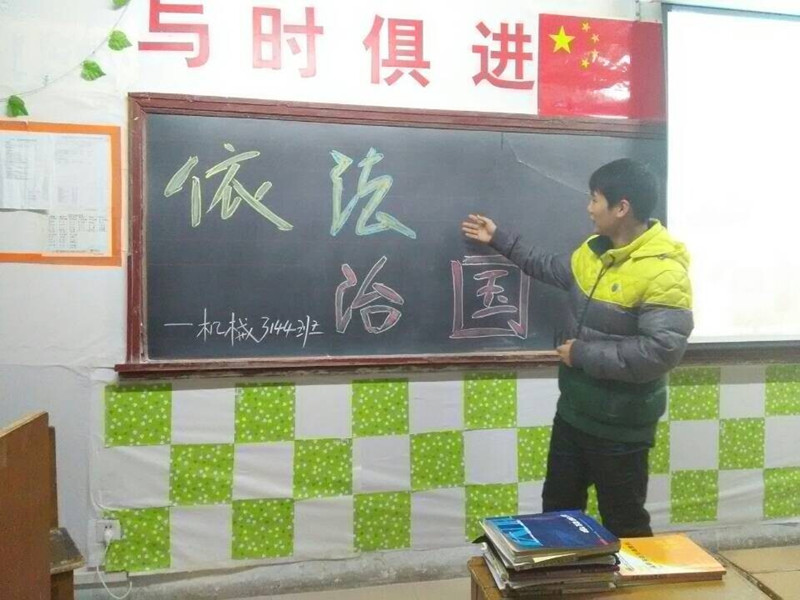 与时俱进
依法
治国
一机械3144班